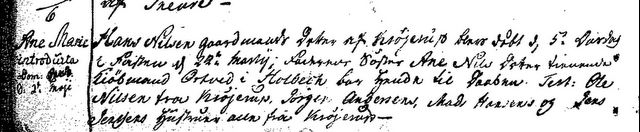 6
Ane Marie
introducta
Dom:
d. 2. Maji
Hans Nilsen gaardmands Dotter af Krøjerup blev døbt d, 5te Løverdag
i Fasten d 22de martij; Faderens Søster Ane Nils Dotter tienende
Kiøbmand Ortved i Holbech bar hende til Daaben. Test: Ole
Nilsen fra Krøjerup, Jørgen Andersens, Mad Hansens og Jens
Jensens Hustruer alle fra Krøjerup